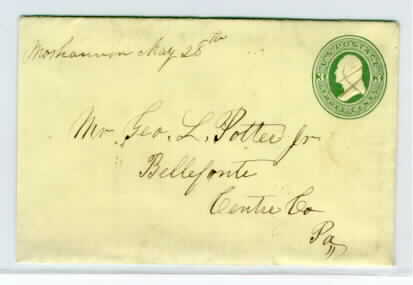 Moshannon May 28th
U.S. POSTAGE
THREE CENTS
Mr. Geo. L. Potter Jr.
Bellefonte
Centre Co
Pa,,